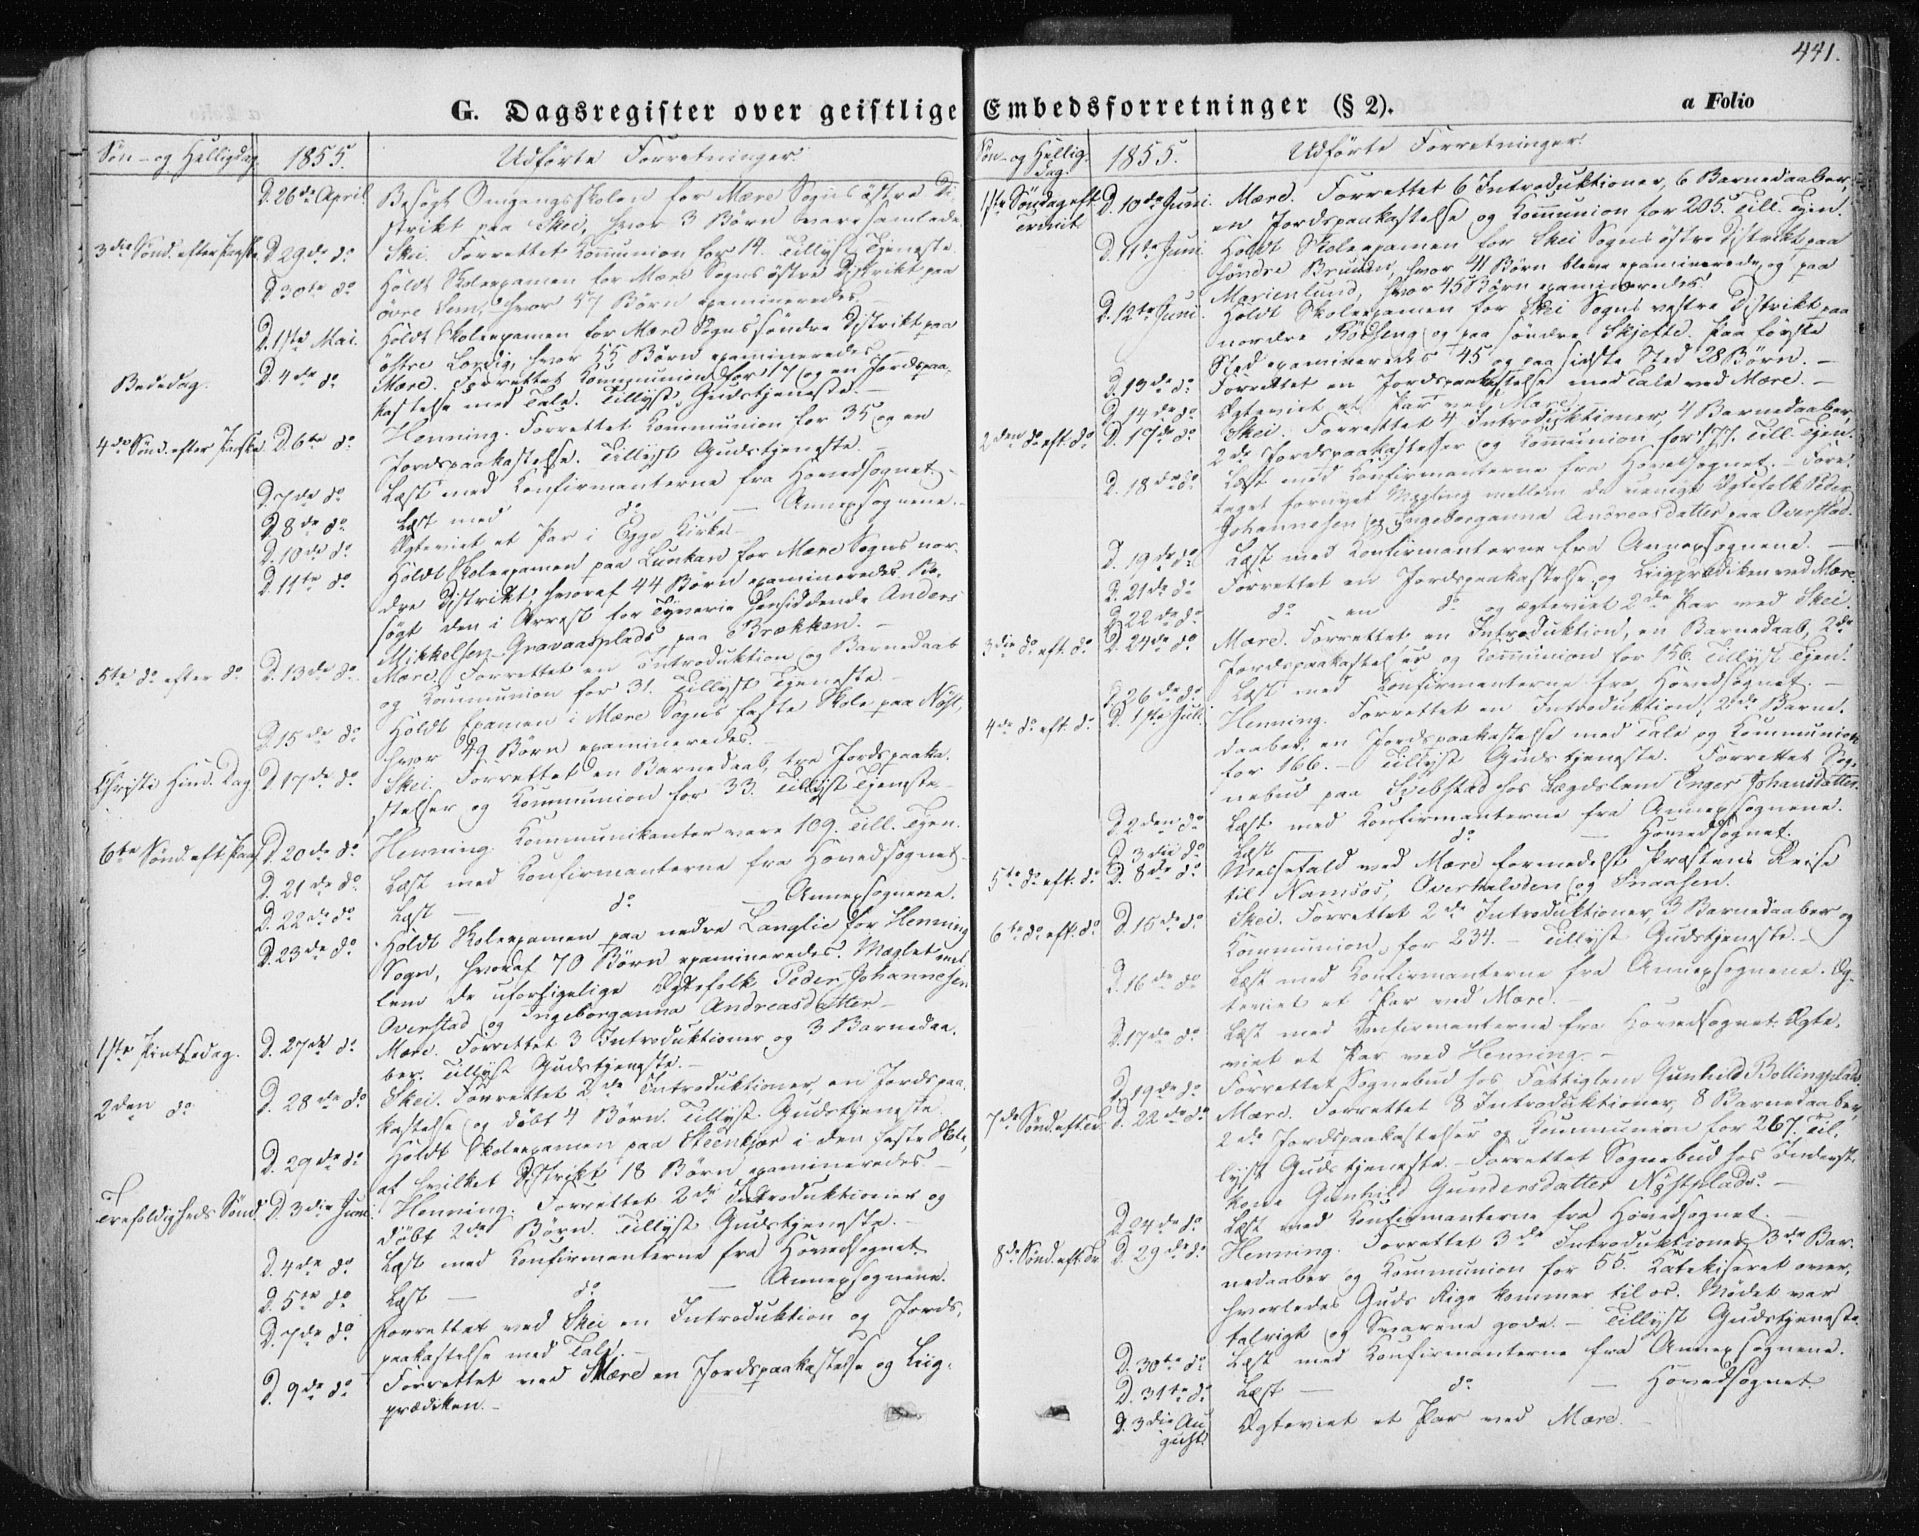 441.
G. Dagsregister over geistlige Embedsforretninger (§ 2).
a Folio
Søn- og Helligdag. 1855. Udførte Forretninger.
D. 26de April Besøgt Omgangsskolen for Mære Sogns østre Di-
strikt paa Skei, hvor 3 Børn vare samlede.
3die Sønd. efter Paaske D. 29de do Skei. Forrettet Kommunion for 14. Tillyst Tjeneste.
D. 30te do Holdt Skoleexamen for Mære Sogns østre Distrikt paa
øvre Lem, hvor 57 Børn examineredes.
D. 1ste Mai. Holdt Skoleexamen for Mære Sogns søndre Distrikt paa
østre Lorvig, hvor 55 Børn examineredes.
Bededag. D. 4de do Mære. Forrettet Kommunion for 17 og en Jordspaa-
kastelse med Tale. Tillyst Gudstjeneste.
4de Sønd. efter Paaske D. 6te do Henning. Forrettet Kommunion for 35 og en
Jordspaakastelse. Tillyst Gudstjeneste.
D. 7de do Læst med Konfirmanterne fra Hovedsognet.
D. 8de do Læst med do — Annexsognene.
D. 10de do Ægteviet et Par i Egge Kirke.
D. 11te do Holdt Skoleexamen paa Lunkan for Mære Sogns nor-
dre Distrikt, hvoraf 44 Børn examineredes. Be-
søgt den i Arrest for Tyverie hensiddende Anders
Mikkelsen Gravaasplads paa Brækken. —
5te do efter do D. 13de do Mære. Forrettet en Introduktion og Barnedaab
og Kommunion for 31. Tillyst Tjeneste. —
D. 15de do Holdt Examen i Mære Sogns faste Skole paa Nøst,
hvor 49 Børn examineredes.
Christi Him. Dag D. 17de do Skei. Forrettet en Barnedaab, tre Jordspaaka-
stelser og Kommunion for 33. Tillyst Tjeneste. —
6te Sønd. eft. Paas. D. 20de do Henning. Kommunikanter vare 109. Till. Tjen.
D. 21de do Læst med Konfirmanterne fra Hovedsognet.
D. 22de do Læst — do — Annexsognene.
D. 23de do Holdt Skoleexamen paa nedre Langlie for Henning
Sogn, hvoraf 70 Børn examineredes. Mæglet mel-
lem de uforligelige Ægtefolk Peder Johannesen
Overstad og Ingeborganna Andreasdatter. —
1ste Pintsedag. D. 27de do Mære. Forrettet 3 Introduktioner og 3 Barnedaa-
ber. Tillyst Gudstjeneste. —
2den do D. 28de do Skei. Forrettet 2de Introduktioner, en Jordspaa-
kastelse og døbt 4 Børn. Tillyst Gudstjeneste.
D. 29de do Holdt Skoleexamen paa Steenkjær i den faste Skole,
af hvilket Distrikt 18 Børn examineredes. —
Trefoldigheds Sønd. D. 3die Juni. Henning. Forrettet 2de Introduktioner og
døbt 2de Børn. Tillyst Gudstjeneste. —
D. 4de do Læst med Konfirmanterne fra Hovedsognet.
D. 5te do Læst — do — Annexsognene.
D. 7de do Forrettet ved Skei en Introduktion og Jords-
paakastelse med Tale. —
D. 9de do Forrettet ved Mære en Jordspaakastelse og Liig-
prædiken. —
Søn- og Hellig-
dag. 1855. Udførte Forretninger.
1ste Søndag eft.
Trinit. D. 10de Juni. Mære. Forrettet 6 Introduktioner, 6 Barnedaaber,
en Jordspaakastelse og Kommunion for 205. Till. Tjen.
D. 11te Juni. Holdt Skoleexamen for Skei Sogns østre Distrikt paa
søndre Bruem, hvor 41 Børn bleve examinerede, og paa
Marienlund, hvor 45 Børn examineredes.
D. 12te Juni. Holdt Skoleexamen for Skei Sogns vestre Distrikt paa
nordre Rødseng og paa søndre Skjefte. Paa første
Sted examineredes 45 og paa sidste Sted 28 Børn. —
D. 13de do Forrettet en Jordspaakastelse med Tale ved Mære. —
D. 14de do Ægteviet et Par ved Mære. —
2den do eft. do D. 17de do Skei. Forrettet 4 Introduktioner, 4 Barnedaaber,
2de Jordspaakastelser og Kommunion for 177. Till. Tjen.
D. 18de do Læst med Konfirmanterne fra Hovedsognet. — Fore-
taget fornyet Mægling mellem de uenige Ægtefolk Peder
Johannesen og Ingeborganna Andreasdatter paa Overstad.
D. 19de do Læst med Konfirmanterne fra Annexsognene. —
D. 21de do Forrettet en Jordspaakastelse og Liigprædiken ved Mære.
D. 22de do do en do og ægteviet 2de Par ved Skei.
3die do eft. do D. 24de do Mære. Forrettet en Introduktion, en Barnedaab, 2de
Jordspaakastelser og Kommunion for 156. Tillyst Tjen.
D. 26de do Læst med Konfirmanterne fra Hovedsognet. —
4de do eft. do D. 1ste Juli Henning. Forrettet en Introduktion, 2de Barne-
daaber, en Jordspaakastelse med Tale og Kommunion
for 166. — Tillyst Gudstjeneste. Forrettet Sog-
nebud paa Svebstad hos Lægdslem Inger Johansdatter.
D. 2den do Læst med Konfirmanterne fra Annexsognene.
D. 3die do Læst — do — Hovedsognet.
5te do eft. do D. 8de do Messefald ved Mære formedelst Præstens Reise
til Namsos, Overhalvden og Snaasen.
6te do eft. do D. 15de do Skei. Forrettet 2de Introduktioner, 3 Barnedaaber og
Kommunion for 234. — Tillyst Gudstjeneste. —
D. 16de do Læst med Konfirmanterne fra Annexsognene. Æg-
teviet et Par ved Mære. —
D. 17de do Læst med Konfirmanterne fra Hovedsognet. Ægte-
viet et Par ved Henning. —
D. 19de do Forrettet Sognebud hos Fattiglem Gunhild Bollingplads.
7de Sønd. eft. D. 22de do Mære. Forrettet 8 Introduktioner, 8 Barnedaaber,
2de Jordspaakastelser og Kommunion for 267. Til-
lyst Gudstjeneste. — Forrettet Sognebud hos
Kone Gunhild Gundersdatter Nøstplads. —
D. 24de do Læst med Konfirmanterne fra Hovedsognet. —
8de Sønd. eft. Tr. D. 29de do Henning. Forrettet 3de Introduktioner, 3de Bar-
nedaaber og Kommunion for 55. Katekiseret over,
hvorledes Guds Rige kommer til os. Mødet var
talrigt og Svarene gode. — Tillyst Gudstjeneste.
D. 30te do Læst med Konfirmanterne fra Annexsognene.
D. 31te do Læst — do — Hovedsognet.
D. 3die Au-
gust. Ægteviet et Par ved Mære. —